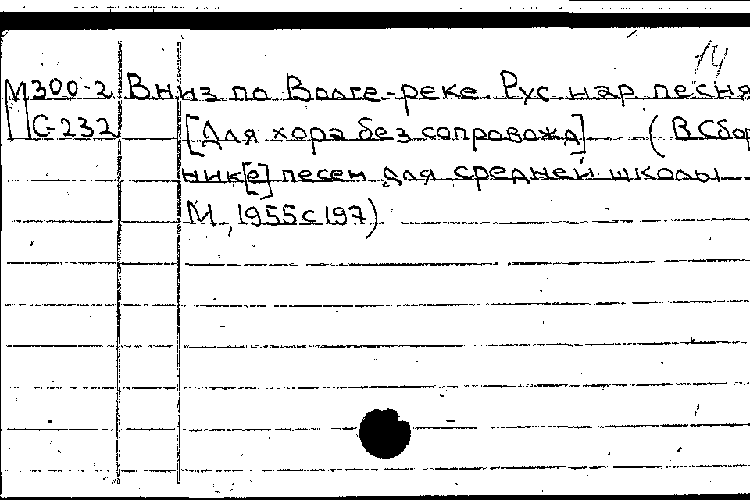 14
М300-2 Вниз по Волге-реке. Рус. нар. песня
С-232 [Для хора без сопровожд] (В Сбор
ник[е] песен для средней школы
М., 1955 с 197)